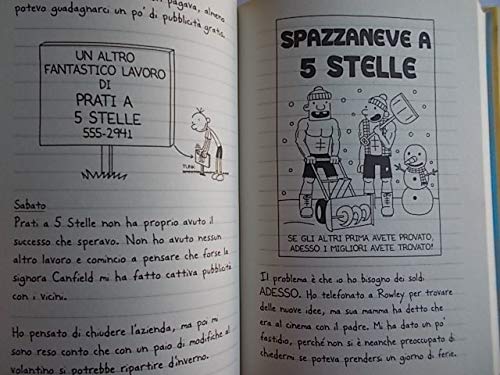 pagava, almeno
potevo guadagnarci un po' di pubblicità gratis.
UN ALTRO
FANTASTICO LAVORO
DI
PRATI A
5 STELLE
555-2941
TUNK
Sabato
Prati a 5 Stelle non ha proprio avuto il
successo che speravo. Non ho avuto nessun
altro lavoro e comincio a pensare che forse la
signora Canfield mi ha fatto cattiva pubblicità
con i vicini.
Ho pensato di chiudere l'azienda, ma poi mi
sono reso conto che con un paio di modifiche al
volantino si potrebbe ripartire d'inverno.
SPAZZANEVE A
5 STELLE
SE GLI ALTRI PRIMA AVETE PROVATO,
ADESSO I MIGLIORI AVETE TROVATO!
Il problema è che io ho bisogno dei soldi
ADESSO. Ho telefonato a Rowley per trovare
delle nuove idee, ma sua mamma ha detto che
era al cinema con il padre. Mi ha dato un po'
fastidio, perché non si è neanche preoccupato di
chiedermi se poteva prendersi un giorno di ferie.